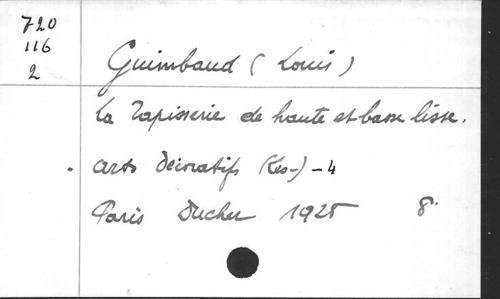 720
116
2
Guimbaud (Louis)
La Tapisserie de haute et basse lisse.
Arts Décoratifs (Les-) - 4
Paris Ducher 1925 8°